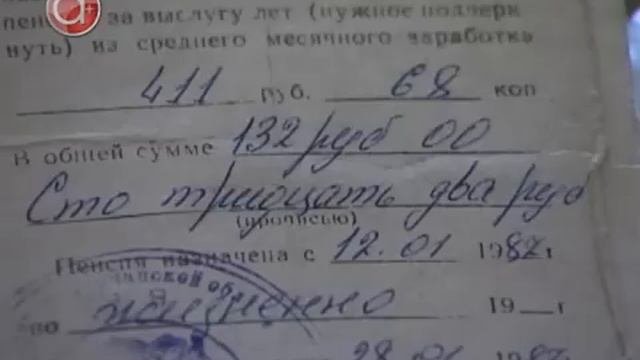 пен за выслугу лет (нужное подчерк
нуть) из среднего месячного заработка
411 руб. 68 коп
В общей сумме 132 руб 00
Сто тридцать два руб
(прописью)
Пенсия назначена с 12.01 1987г
по пожизненно 19 г
28.01 1987